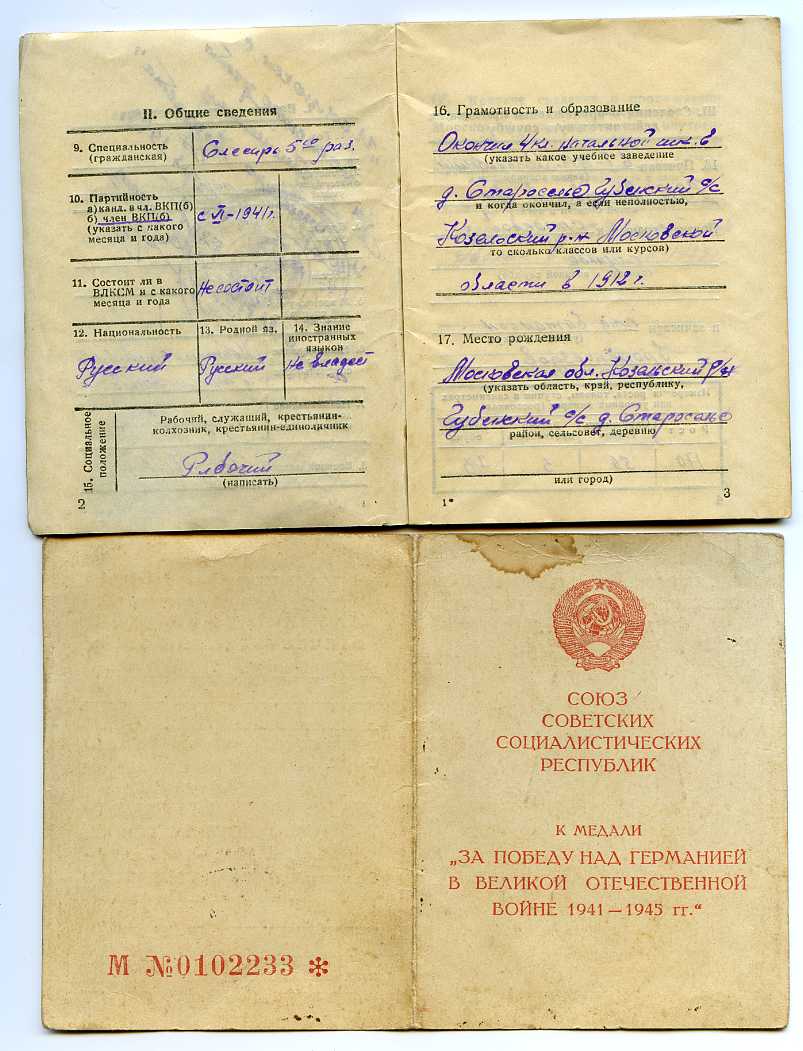 II. Общие сведения
9. Специальность
(гражданская)
Слесарь 5го раз.
10. Партийность
а) канд. в чл. ВКП(б)
б) член ВКП(б)
(указать с какого
месяца и года)
с VI-1941г.
11. Состоит ли в
ВЛКСМ и с какого
месяца и года
Не состоит
12. Национальность
Русский
13. Родной яз.
Русский
14. Знание
иностранных
языков
Не владеет
15. Социальное
положение
Рабочий, служащий, крестьянин-
колхозник, крестьянин-единоличник
Рабочий
(написать)
2
16. Грамотность и образование
Окончил 4 кл. начальной шк. в
(указать какое учебнее заведение
д. Староселье Губенский с/с
и когда окончил, а если неполностью,
Козельский р-н Московской
то сколько классов или курсов)
области в 1912 г.
17. Место рождения
Московская обл. Козельский р/н
(указать область, край, республику,
Губенский с/с д. Староселье
район, сельсовет, деревню
или город)
1*
3
СОЮЗ
СОВЕТСКИХ
СОЦИАЛИСТИЧЕСКИХ
РЕСПУБЛИК
К МЕДАЛИ
„ЗА ПОБЕДУ НАД ГЕРМАНИЕЙ
В ВЕЛИКОЙ ОТЕЧЕСТВЕННОЙ
ВОЙНЕ 1941—1945 гг.“
М №0102233 *